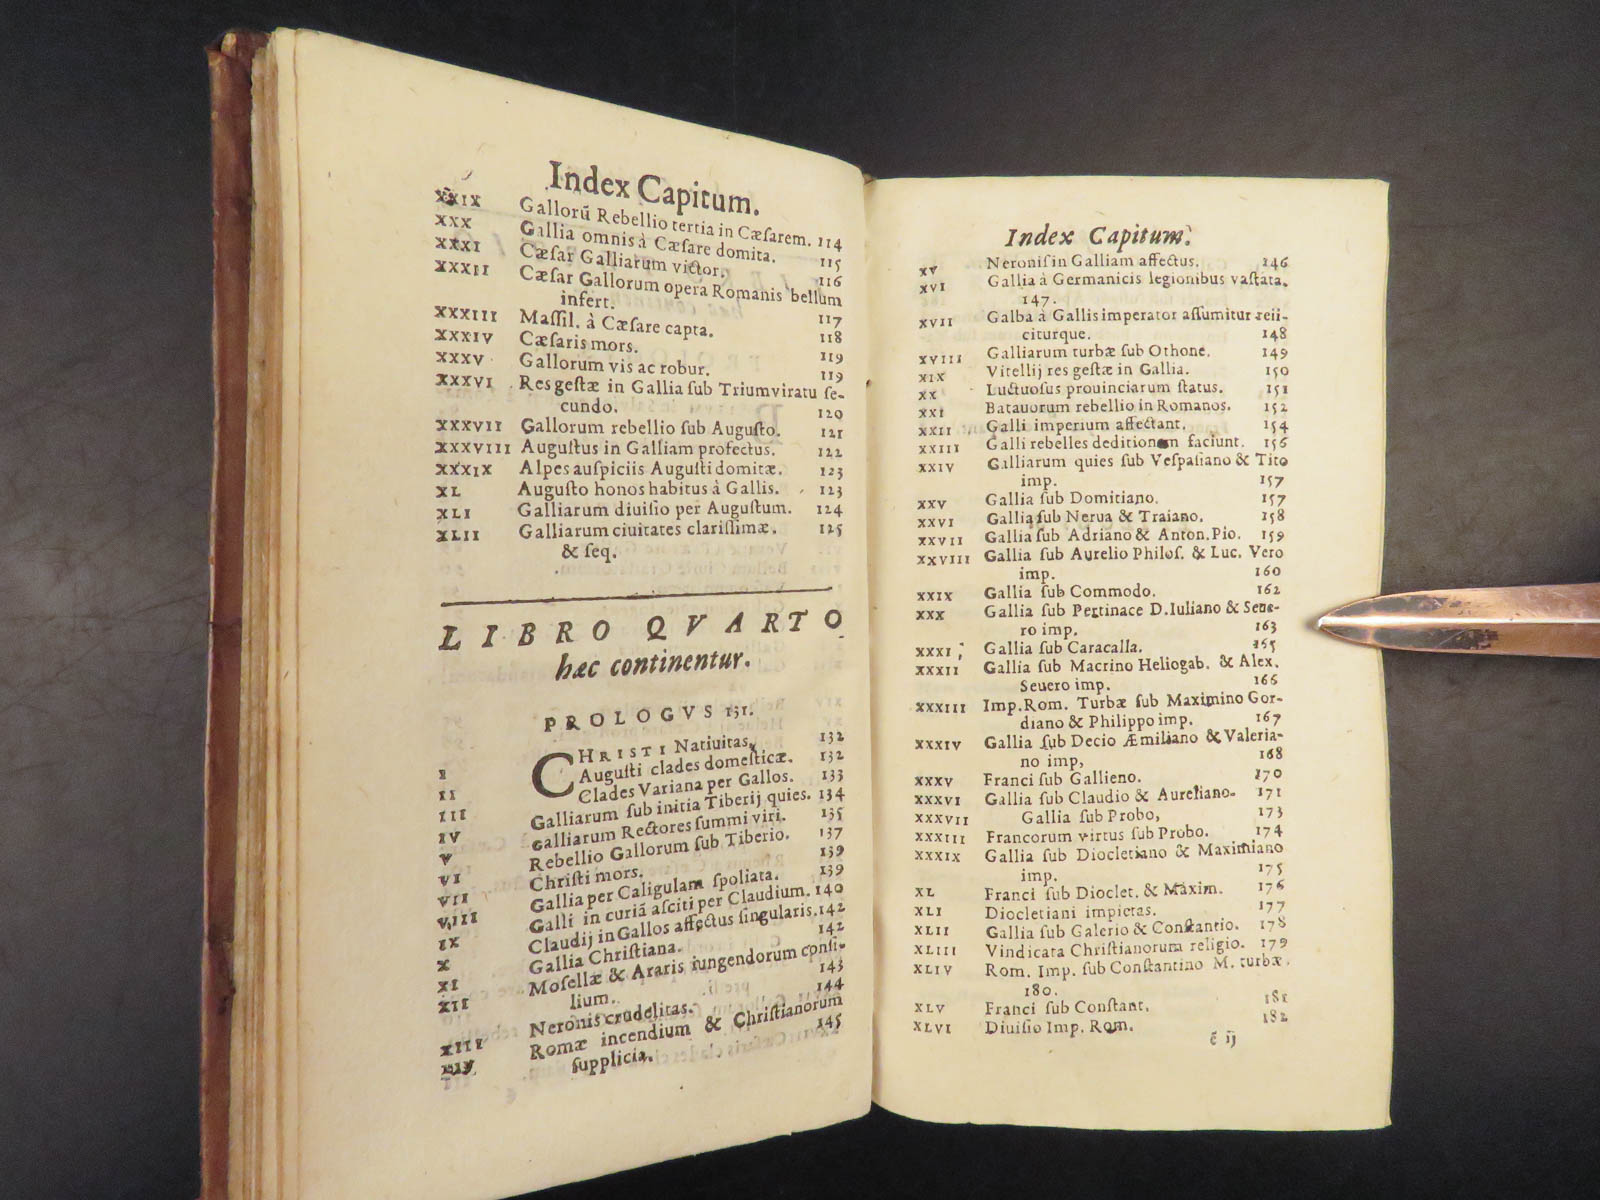 Index Capitum.
XXIX Gallorū Rebellio tertia in Cæſarem. 114
XXX Gallia omnis à Cæſare domita. 115
XXXI Cæſar Galliarum victor. 116
XXXII Cæſar Gallorum opera Romanis bellum
infert. 117
XXXIII Maſſil. à Cæſare capta. 118
XXXIV Cæſaris mors. 119
XXXV Gallorum vis ac robur. 119
XXXVI Res geſtæ in Gallia ſub Triumviratu ſe-
cundo. 120
XXXVII Gallorum rebellio ſub Auguſto. 121
XXXVIII Auguſtus in Galliam profectus. 122
XXXIX Alpes auſpiciis Auguſti domitæ. 123
XL Auguſto honos habitus à Gallis. 123
XLI Galliarum diuiſio per Auguſtum. 124
XLII Galliarum ciuitates clariſſimæ. 125
& ſeq.
LIBRO QVARTO
hæc continentur.
PROLOGVS 131.
I CHRISTI Natiuitas, 132
II Auguſti clades domeſticæ. 132
III Clades Variana per Gallos. 133
IV Galliarum ſub initia Tiberij quies. 134
V Galliarum Rectores ſummi viri. 135
VI Rebellio Gallorum ſub Tiberio. 137
VII Chriſti mors. 139
VIII Gallia per Caligulam ſpoliata. 139
IX Galli in curiā aſciti per Claudium. 140
X Claudij in Gallos affectus ſingularis. 142
XI Gallia Chriſtiana. 142
XII Moſellæ & Araris iungendorum conſi-
lium. 143
XIII Neronis crudelitas. 144
XIV Romæ incendium & Chriſtianorum
ſupplicia. 145
Index Capitum.
XV Neronis in Galliam affectus. 146
XVI Gallia à Germanicis legionibus vaſtata.
147.
XVII Galba à Gallis imperator aſſumitur reii-
citurque. 148
XVIII Galliarum turbæ ſub Othone. 149
XIX Vitellij res geſtæ in Gallia. 150
XX Luctuoſus prouinciarum ſtatus. 151
XXI Batauorum rebellio in Romanos. 152
XXII Galli imperium affectant. 154
XXIII Galli rebelles deditionem faciunt. 156
XXIV Galliarum quies ſub Veſpaſiano & Tito
imp. 157
XXV Gallia ſub Domitiano. 157
XXVI Gallia ſub Nerua & Traiano. 158
XXVII Gallia ſub Adriano & Anton. Pio. 159
XXVIII Gallia ſub Aurelio Philoſ. & Luc. Vero
imp. 160
XXIX Gallia ſub Commodo. 162
XXX Gallia ſub Pertinace D. Iuliano & Seue-
ro imp. 163
XXXI Gallia ſub Caracalla. 165
XXXII Gallia ſub Macrino Heliogab. & Alex.
Seuero imp. 166
XXXIII Imp. Rom. Turbæ ſub Maximino Gor-
diano & Philippo imp. 167
XXXIV Gallia ſub Decio Æmiliano & Valeria-
no imp, 168
XXXV Franci ſub Gallieno. 170
XXXVI Gallia ſub Claudio & Aureliano. 171
XXXVII Gallia ſub Probo, 173
XXXIII Francorum virtus ſub Probo. 174
XXXIX Gallia ſub Diocletiano & Maximiano
imp. 175
XL Franci ſub Dioclet. & Maxim. 176
XLI Diocletiani impietas. 177
XLII Gallia ſub Galerio & Conſtantio. 178
XLIII Vindicata Chriſtianorum religio. 179
XLIV Rom. Imp. ſub Conſtantino M. turbæ.
180.
XLV Franci ſub Conſtant. 181
XLVI Diuiſio Imp. Rom. 182
ē ij